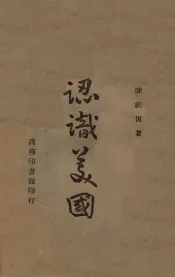 陳鈺恆著
認識美國
商務印書館印行